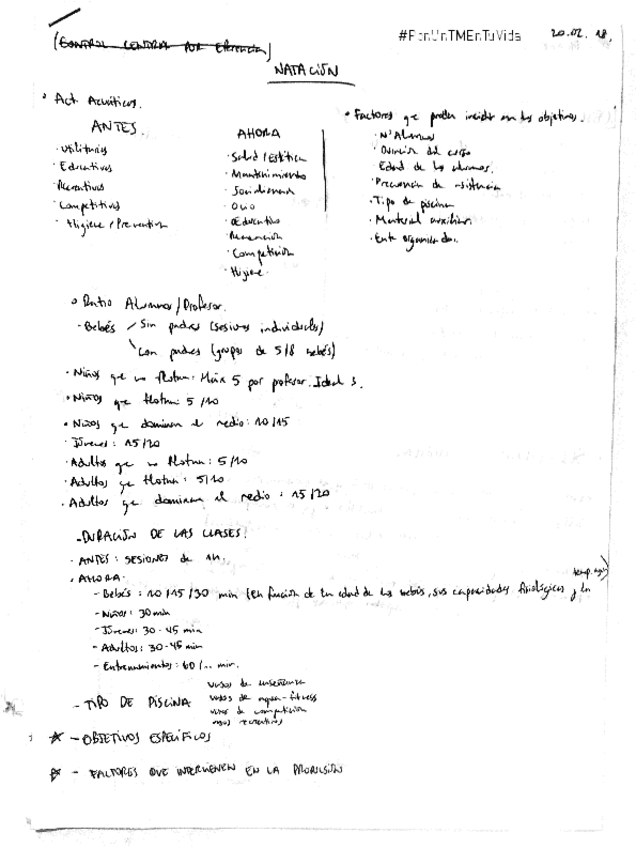 (CONTROL CENTRA POR EFICIENCIA)
#PonUnTMEnTuVida
20.02.18.
NATACIÓN
• Act. Acuáticas.
ANTES.
· Utilitarias
· Educativas
· Recreativas
· Competitivas
· Higiene / Preventiva
AHORA
· Salud / Estética
· Mantenimiento
· Ocio
· Educativo
· Competición
· Higiene.
• Factores que pueden incidir en los objetivos.
· Nº Alumnos
· Duración del curso
· Edad de los alumnos.
· Frecuencia de asistencia
· Tipo de piscina
· Material auxiliar.
· Ente organizador.
• Ratio Alumnos / Profesor.
- Bebés / Sin padres (sesiones individuales)
\ Con padres (grupos de 5/8 bebés)
• Niños que no flotan: Máx 5 por profesor. Ideal 3.
• Niños que flotan: 5/10
• Niños que dominan el medio: 10/15
· Jóvenes: 15/20
· Adultos que no flotan: 5/10
· Adultos que flotan: 5/10
· Adultos que dominan el medio: 15/20
- DURACIÓN DE LAS CLASES.
· ANTES: SESIONES de 1H.
· AHORA.
- Bebés: 10/15/30 min (en función de la edad de los bebés, sus capacidades fisiológicas y la temp. agua)
- Niños: 30 min
- Jóvenes: 30-45 min
- Adultos: 30-45 min
- Entrenamientos: 60/... min.
- TIPO DE PISCINA
vasos de enseñanza
vasos de aqua-fitness
vasos de competición
vasos recreativos
* - OBJETIVOS ESPECÍFICOS
* - FACTORES QUE INTERVIENEN EN LA